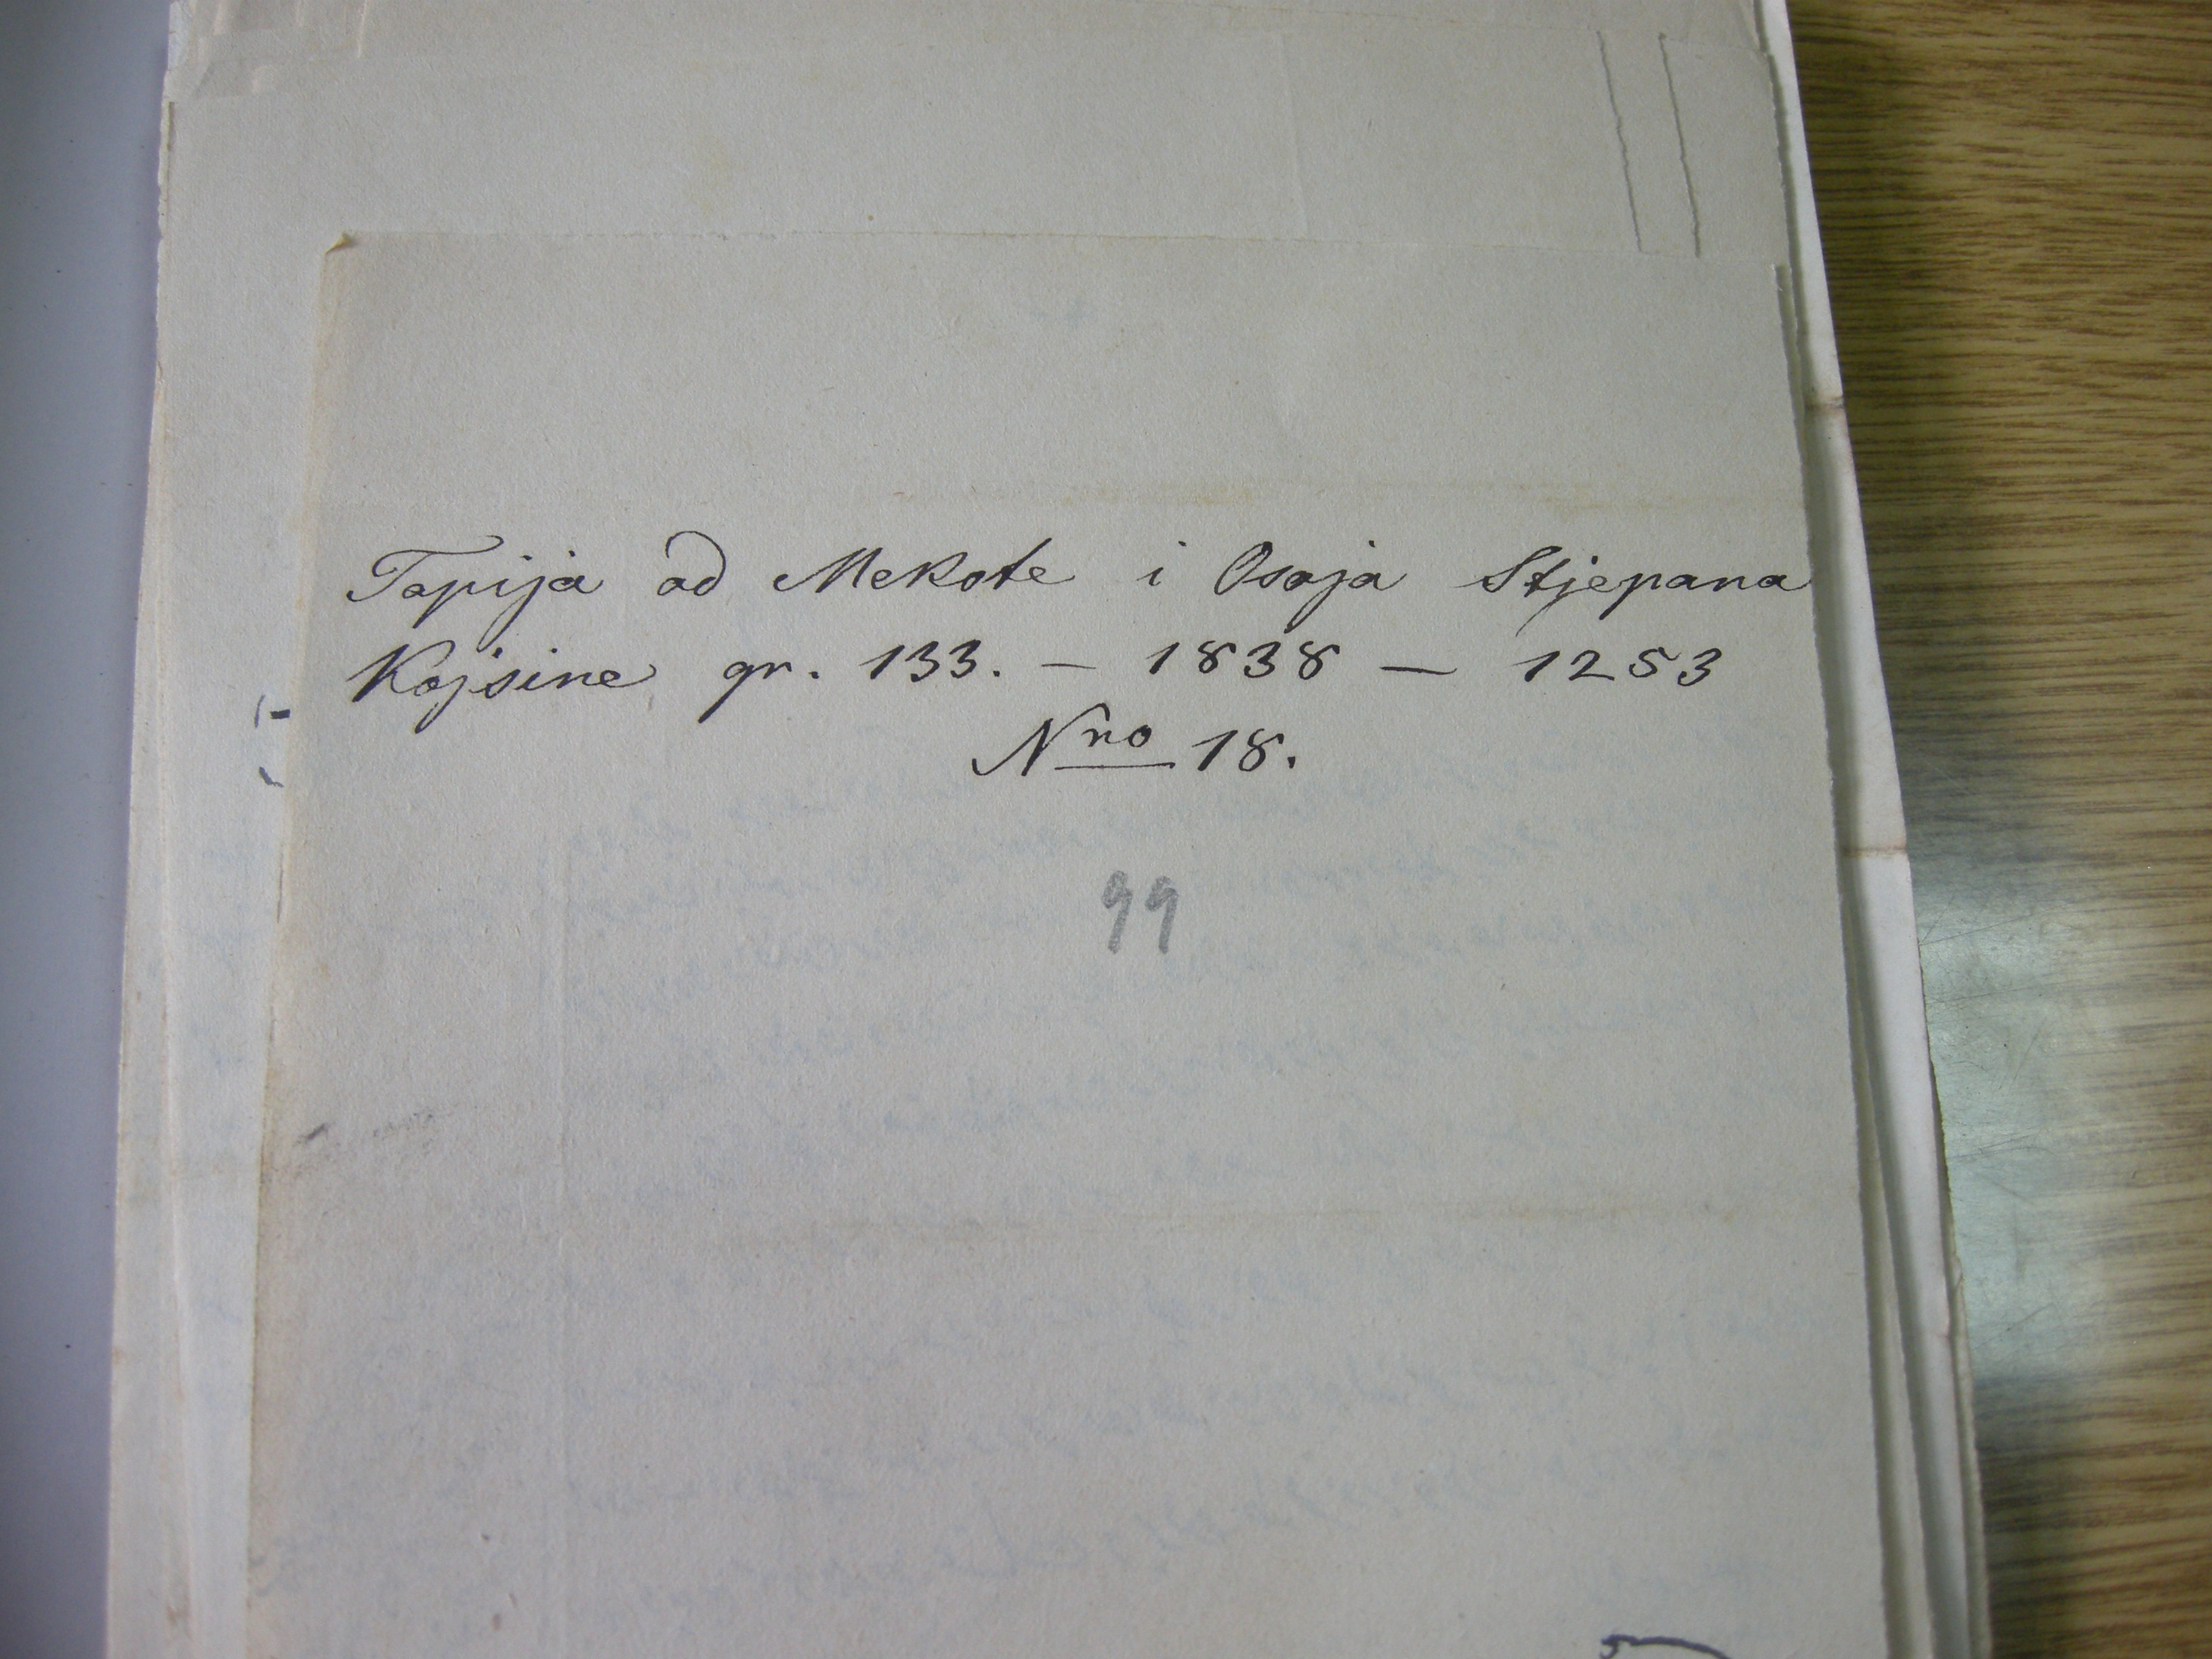 Tapija od Mekote i Osoja Stjepana
Kojsine gr. 133. — 1838 — 1253
Nro 18.
99